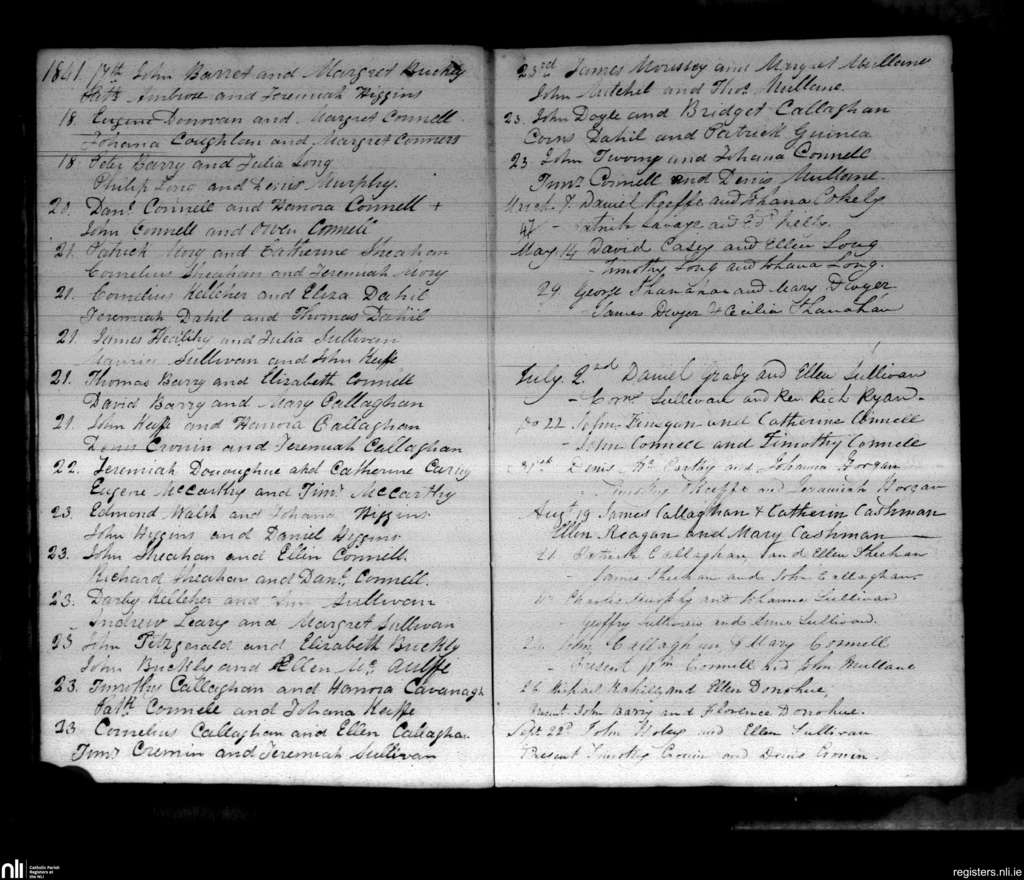 1841. 17th John Barret and Margret Buckly
Patk Ambrose and Jeremiah Higgins
18. Eugene Donovan and Margret Connell
Johana Coughlan and Margret Conners
18. Peter Barry and Julia Long
Philip Long and Denis Murphy.
20. Danl Connell and Hanora Connell +
John Connell and Owen Connell
21. Patrick Mory and Catherine Sheahan
Cornelius Sheahan and Jeremiah Mory
21. Cornelius Kelleher and Eliza Dahil
Jeremiah Dahil and Thomas Dahil
21. James Healihy and Julia Sullivan
Maurice Sullivan and John Keffe
21. Thomas Barry and Elizabeth Connell
David Barry and Mary Callaghan
21. John Keffe and Hanora Callaghan
Denis Cronin and Jeremiah Callaghan
22. Jeremiah Donoughue and Catherine
Eugene McCarthy and Timy McCarthy
23. Edmond Walsh and Johana Higgins
John Higgins and Daniel Higgins
23. John Sheahan and Ellen Connell.
Richard Sheahan and Danl. Connell.
23. Darby Kelleher and Ann Sullivan
Andrew Leary and Margret Sullivan
23 John Fitzgerald and Elizabeth Buckly
John Buckly and Ellen Mc Auliffe
23. Timothy Callaghan and Hanora Cavanagh
Patk Connell and Johana Keffe
23 Cornelius Callaghan and Ellen Callaghan
Timy Cremin and Jeremiah Sullivan
23rd James and Margret Mullane
John Mitchel and Thos Mullane.
23. John Doyle and Bridget Callaghan
Corns Dahil and Patrick Guinea
23. John Twomy and Johana Connell
Timy Connell and Denis Mullane.
March 7. Daniel Keeffe and Johana
Patrick Savage and Ed Kelly.
May. 14 David Casey and Ellen Long
- Timothy Long and Johana Long.
29. George Shanahan and Mary Dwyer
- James Dwyer & Cecilia Shanahan
July. 2nd Daniel Grady and Ellen Sullivan
- Corns Sullivan and Rev Rich Ryan -
Do 22 John Finegan and Catherine Connell
- John Connell and Timothy Connell
Denis McCarthy and Johanna Horgan
- Timothy Keeffe and Jeremiah Horgan
Augt 19 James Callaghan & Catherin Cashman
Ellen Reagan and Mary Cashman
21 Patrick Callaghan, and Ellen Sheehan
- James Sheehan and John Callaghan
Charles Murphy and Johanna Sullivan
- Geffry Sullivan and Sullivan
John Callaghan & Mary Connell
- Present Connell and John Mullane
26 Michael and Ellen Donohue,
Present John Barry and Florence Donohue.
Sept 22d John and Ellen Sullivan
Present Timothy Cronin and Denis Cronin -
nli
Catholic Parish
Registers at
the NLI
registers.nli.ie